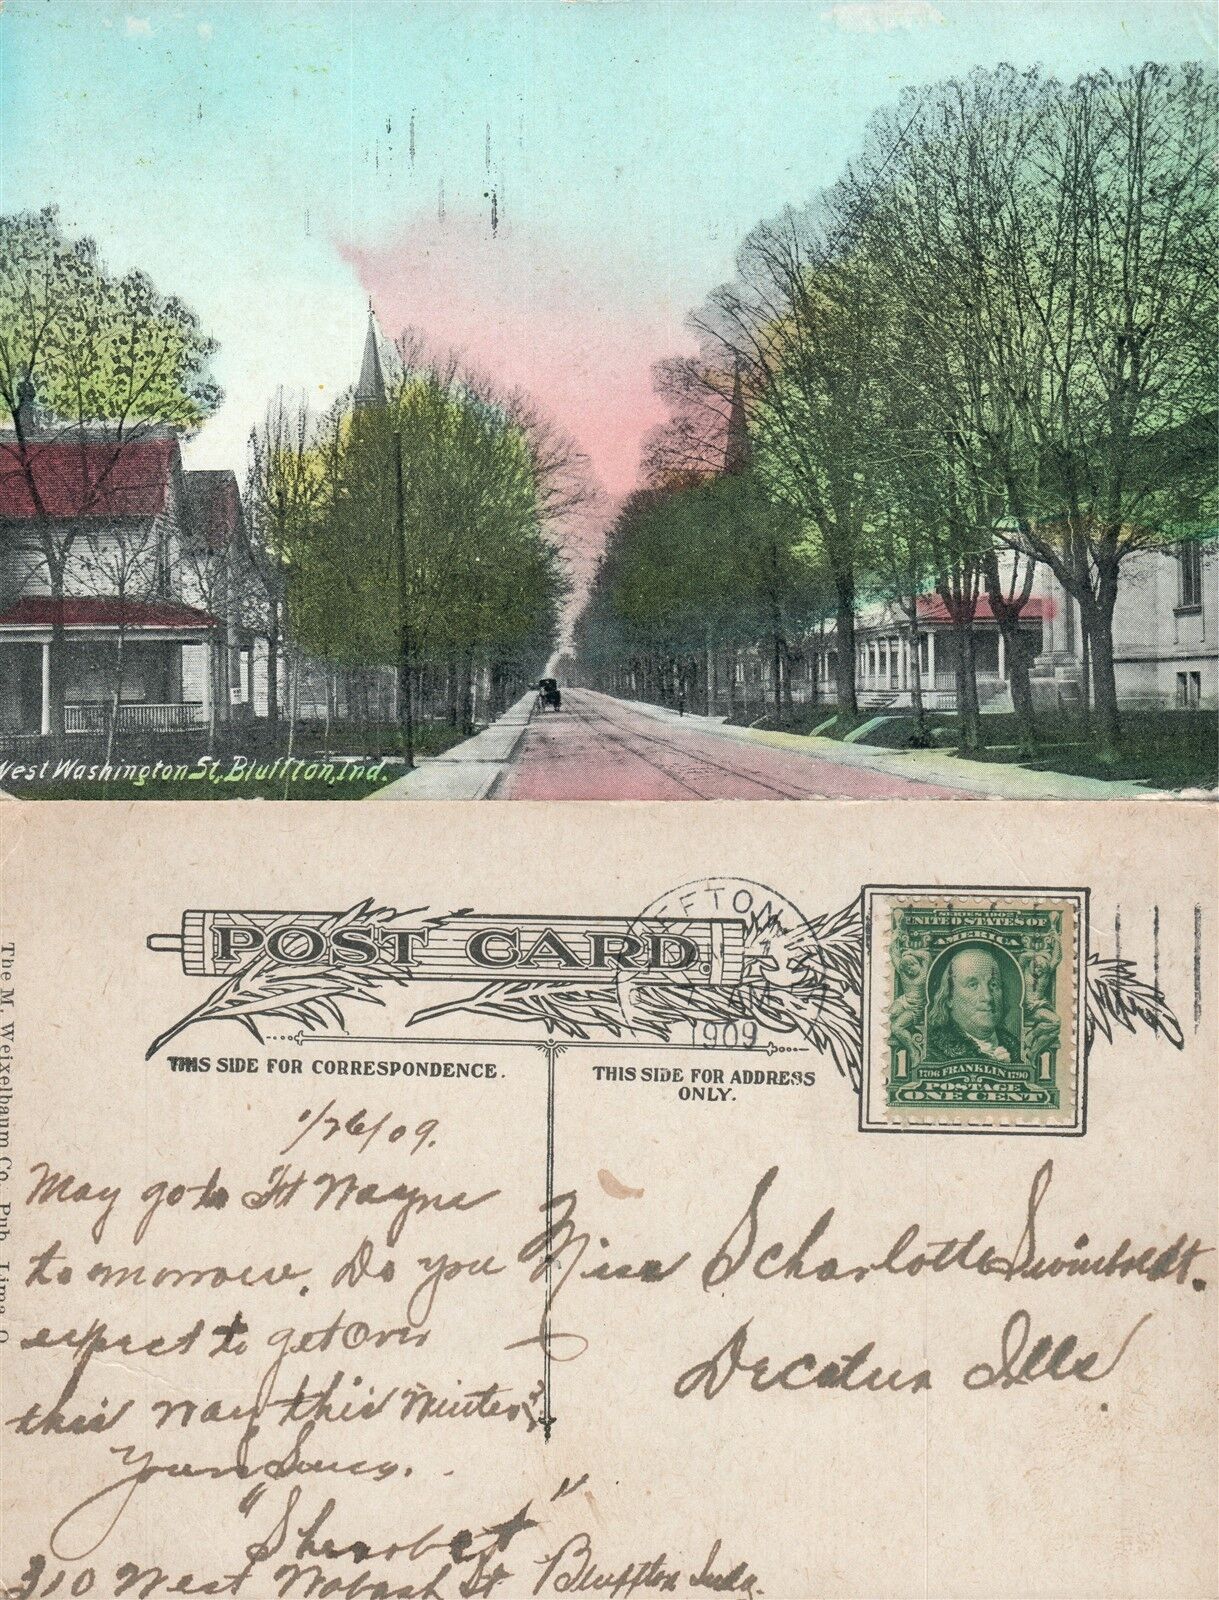 West Washington St, Bluffton, Ind.
POST CARD.
1909
AM
SERIES 1902
UNITED STATES OF
AMERICA
1 1706 FRANKLIN 1790 1
POSTAGE
ONE CENT
THIS SIDE FOR CORRESPONDENCE.
THIS SIDE FOR ADDRESS
ONLY.
The M. Weixelbaum Co. Pub. Lima, O.
1/26/09.
May go to Ft Wayne
tomorrow. Do you
expect to get over
this way this Winter?
Yours Truly.
310 West Wabash St Bluffton Inda.
Miss Scharlotte
Decatur Ills